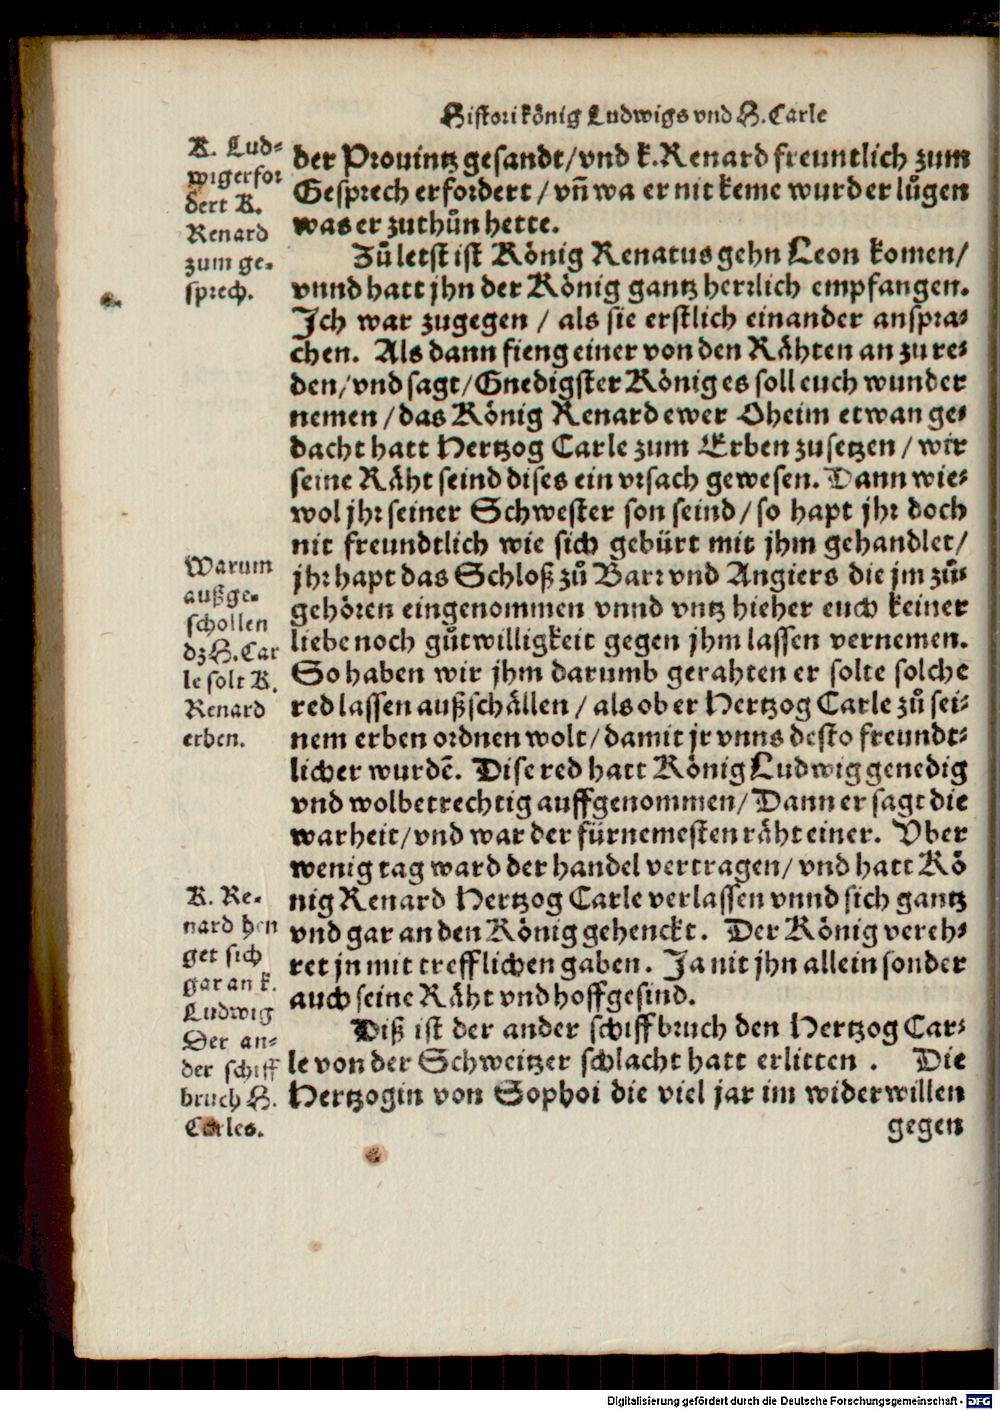 Histori kônig Ludwigs vnd H. Carle
K. Lud-
wig erfor
dert K.
Renard
zum ge-
sprech.
der Prouintz gesandt/vnd k. Renard freuntlich zum
Gesprech erfordert/vñ wa er nit keme wurd er lůgen
was er zuthůn hette.
Zů letst ist König Renatus gehn Leon komen/
vnnd hatt jhn der König gantz herrlich empfangen.
Ich war zugegen / als sie erstlich einander anspra-
chen. Als dann fieng einer von den Rähten an zu re-
den/vnd sagt/Gnedigster König es soll euch wunder
nemen/das König Renard ewer Oheim etwan ge-
dacht hatt Hertzog Carle zum Erben zusetzen/wir
seine Räht seind dises ein vrsach gewesen. Dann wie-
wol jhr seiner Schwester son seind/so hapt jhr doch
nit freundtlich wie sich gebürt mit jhm gehandlet/
Warum
außge-
schollen
dz H. Car
le solt K.
Renard
erben.
jhr hapt das Schloß zů Barr vnd Angiers die jm zů-
gehören eingenommen vnnd vntz hieher euch keiner
liebe noch gůtwilligkeit gegen jhm lassen vernemen.
So haben wir jhm darumb gerahten er solte solche
red lassen außschällen/als ob er Hertzog Carle zů sei-
nem erben ordnen wolt/damit jr vnns desto freundt-
licher wurdẽ. Dise red hatt König Ludwig genedig
vnd wolbetrechtig auffgenommen/Dann er sagt die
warheit/vnd war der fürnemesten räht einer. Vber
wenig tag ward der handel vertragen/vnd hatt Kö
K. Re-
nard hen
get sich
gar an k.
Ludwig
Der an-
der schiff
bruch H.
Carles.
nig Renard Hertzog Carle verlassen vnnd sich gantz
vnd gar an den König gehenckt. Der König vereh-
ret jn mit trefflichen gaben. Ja nit jhn allein sonder
auch seine Räht vnd hoffgesind.
Diß ist der ander schiffbruch den Hertzog Car-
le von der Schweitzer schlacht hatt erlitten . Die
Hertzogin von Sophoi die viel jar im widerwillen
gegen
Digitalisierung gefördert durch die Deutsche Forschungsgemeinschaft - DFG